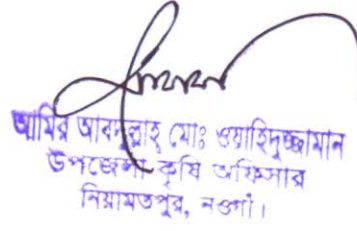 আমির আবদুল্লাহ মোঃ ওয়াহিদুজ্জামান
উপজেলা কৃষি অফিসার
নিয়ামতপুর, নওগাঁ।